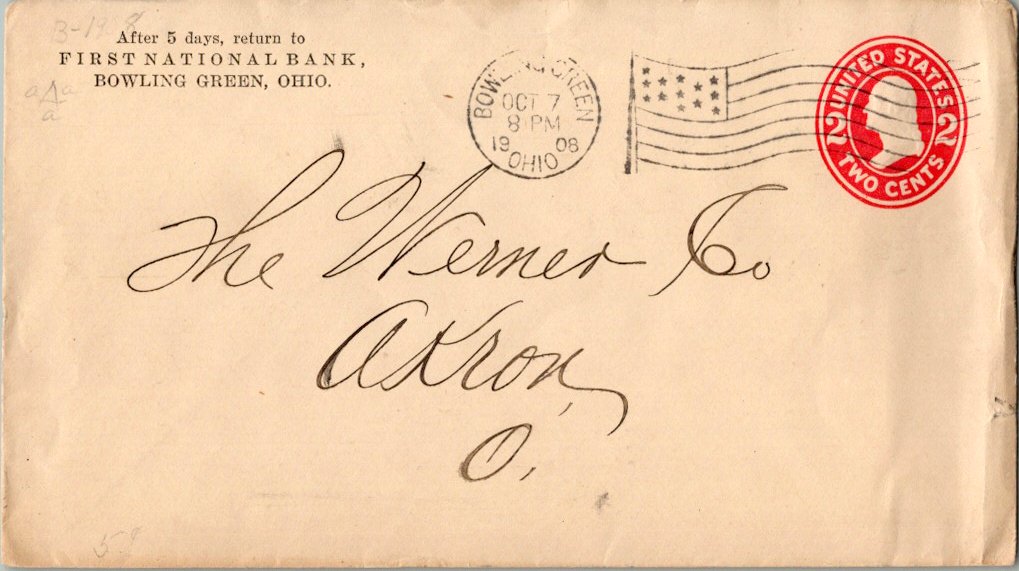 After 5 days, return to
FIRST NATIONAL BANK,
BOWLING GREEN, OHIO.
BOWLING GREEN
OCT 7
8 PM
19 08
OHIO
UNITED STATES
2 2
TWO CENTS
The Werner Co
Akron,
O.